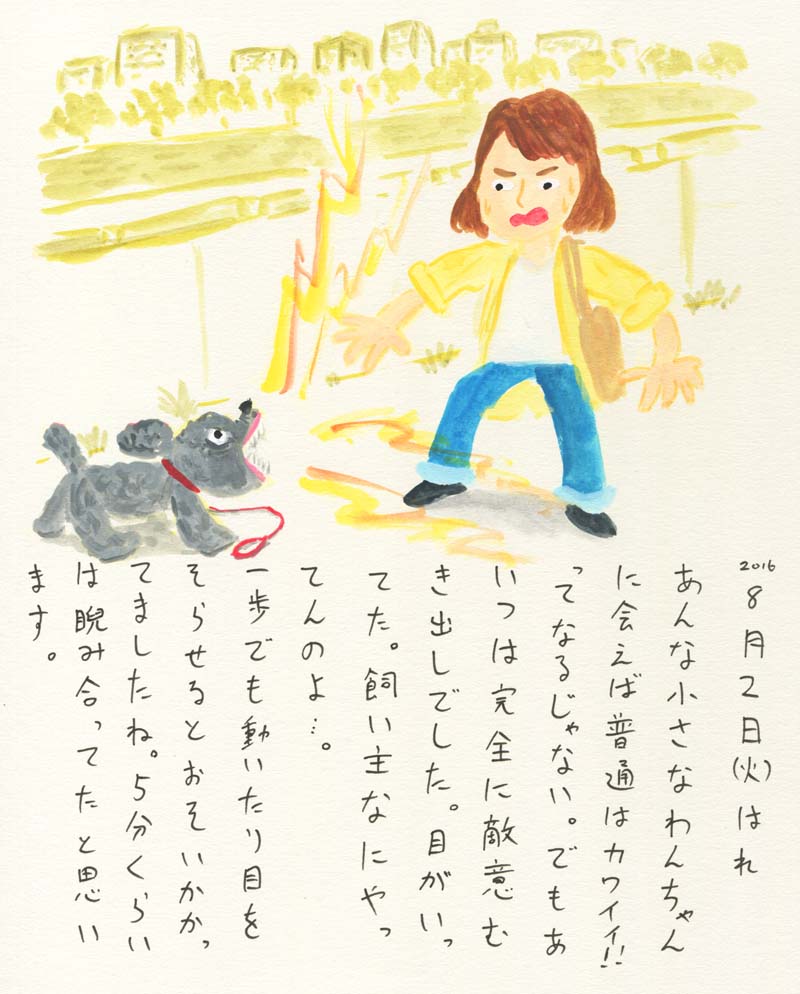 2016
8月2日(火)はれ
あんな小さなわんちゃん
に会えば普通はカワイイ!!
ってなるじゃない。でもあ
いつは完全に敵意む
き出しでした。目がいっ
てた。飼い主なにやっ
てんのよ…。
一歩でも動いたり目を
そらせるとおそいかかっ
てましたね。5分くらい
は睨み合ってたと思い
ます。